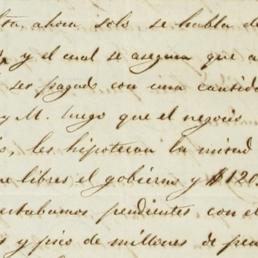 ta, ahora solo se habla de
y el cual se asegura que a
ser pagado con una cantida
y M. luego que el negocio
les hipotecan la mitad
libres el gobierno y $120
estabamos pendientes con el
y pico de millones de pesos